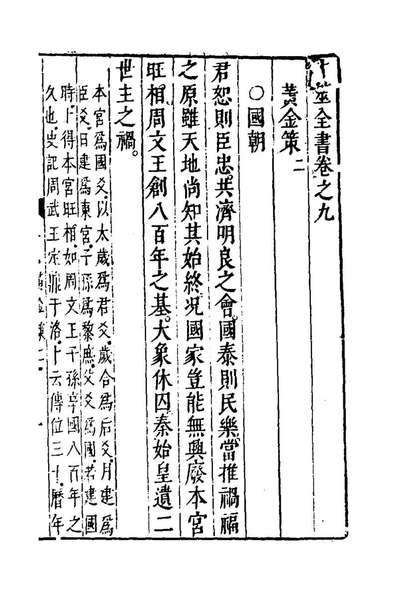 卜筮全書卷之九
黃金策二
○國朝
君恕則臣忠。共濟明良之會。國泰則民樂。當推禍福
之原雖天地尚知其始終。況國家豈能無興廢本宮
旺相。周文王創八百年之基。大象休囚。秦始皇遺二
世主之禍。
本宮爲國爻以太歲爲君爻。歲合爲后爻。月建爲
臣爻。日建爲東宮。子孫爲黎庶。父爻爲國。若建國
時。卜得本宮旺相。如周文王子孫享國八百年之
久也史記周武王定鼎于洛。卜云傳位三十。曆年